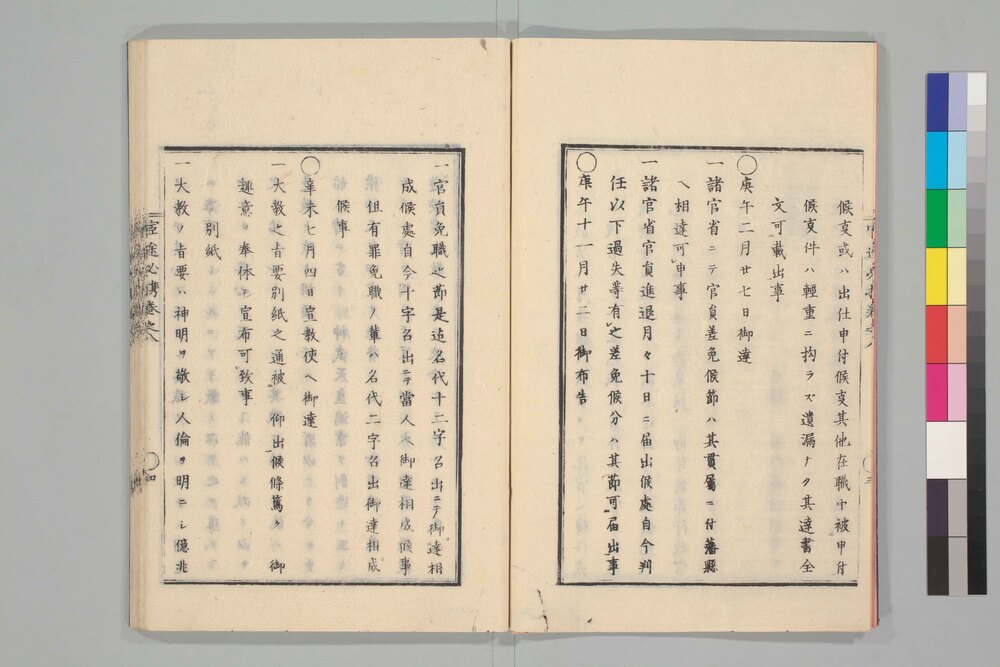 候叓或ハ出仕申付候叓其他在職中被申付
候叓件ハ輕重ニ拘ラズ遺漏ナク其達書全
文可載出事
◯庚午二月廿七日御達
一諸官省ニテ官員差免候節ハ其貫屬ニ付藩縣
ヘ相達可申事
一諸官省官員進退月々十日ニ届出候處自今判
任以下過失等有之差免候分ハ其節可届出事
◯庚午十一月廿二日御布告
一官員免職之節是迠名代十二字召出ニテ御達相
成候處自今十字召出ニテ當人ヘ御達相成候事
但有罪免職ノ輩ハ名代二字召出御達相成
候事
◯辛未七月四日宣教使ヘ御達
一大教之旨要別紙之通被 仰出候條篤ク御
趣意ヲ奉体シ宣布可致事
別紙
一大教ノ旨要ハ神明ヲ敬シ人倫ヲ明ニシ億兆
官途必携巻之八
四